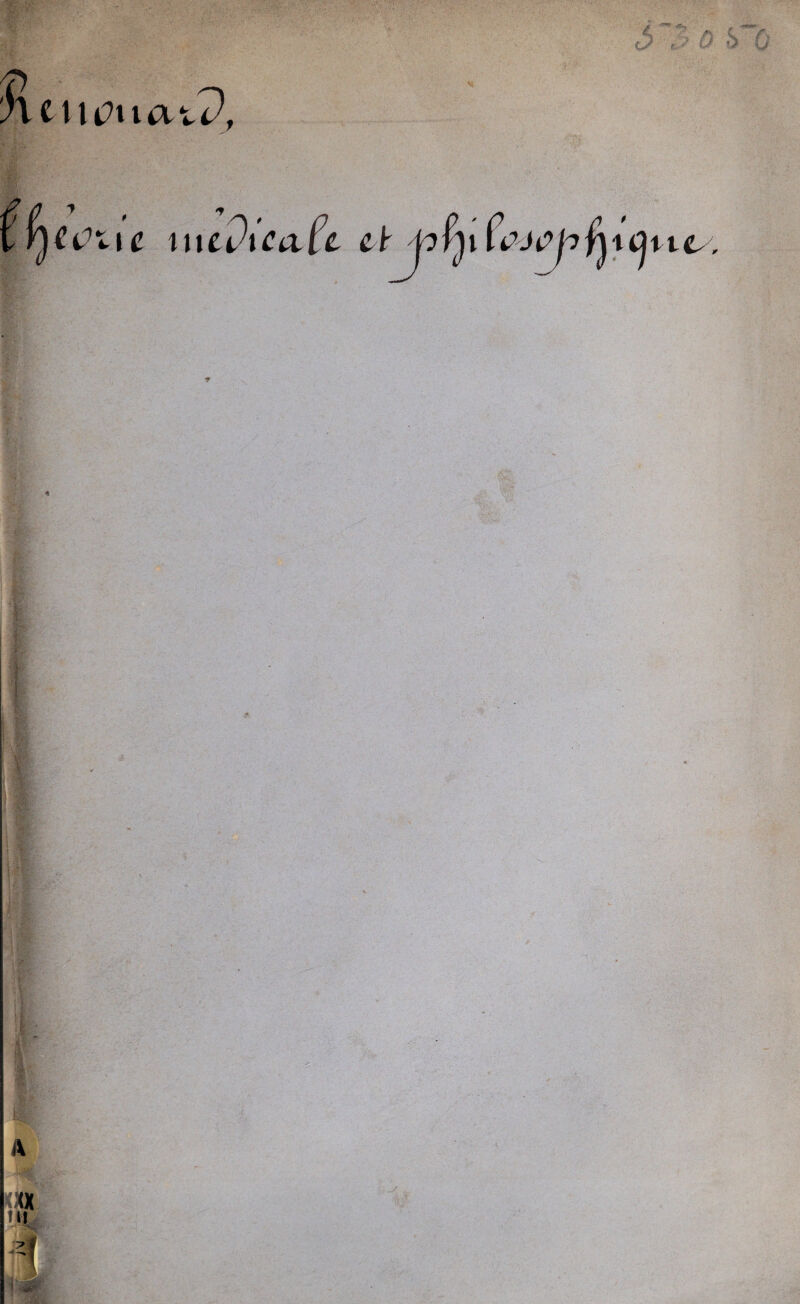 53050
Renouard,
Théorie médicale et philosophique.
A
XXX